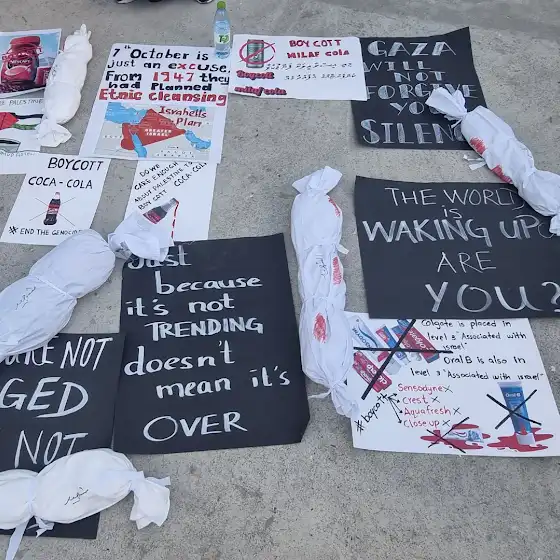 PALESTINE
7th October is
just an excuse,
From 1947 they
had Planned
Etnic cleansing
Isvahells
Plan
GREATER
ISRAEL
BOYCOTT
MILAF COLA
Boycott
milaf cola
GAZA
WILL
NOT
FORGIVE
YOUR
SILEN
BOYCOTT
COCA-COLA
* END THE GENOCIDE
DO WE
CARE ENOUGH
ABOUT PALESTINE TO
BOYCOTT COCA-COLA
THE WORLD
is
WAKING UP
ARE
YOU?
Just
because
it's not
TRENDING
doesn't
mean it's
OVER
NOT
GED
NOT
Colgate is placed in
level 3 "Associated with
israel"
Oral B is also in
level 3 "Associated with israel"
#boycott
Sensodyne x
Crest x
Aquafresh x
Close up x